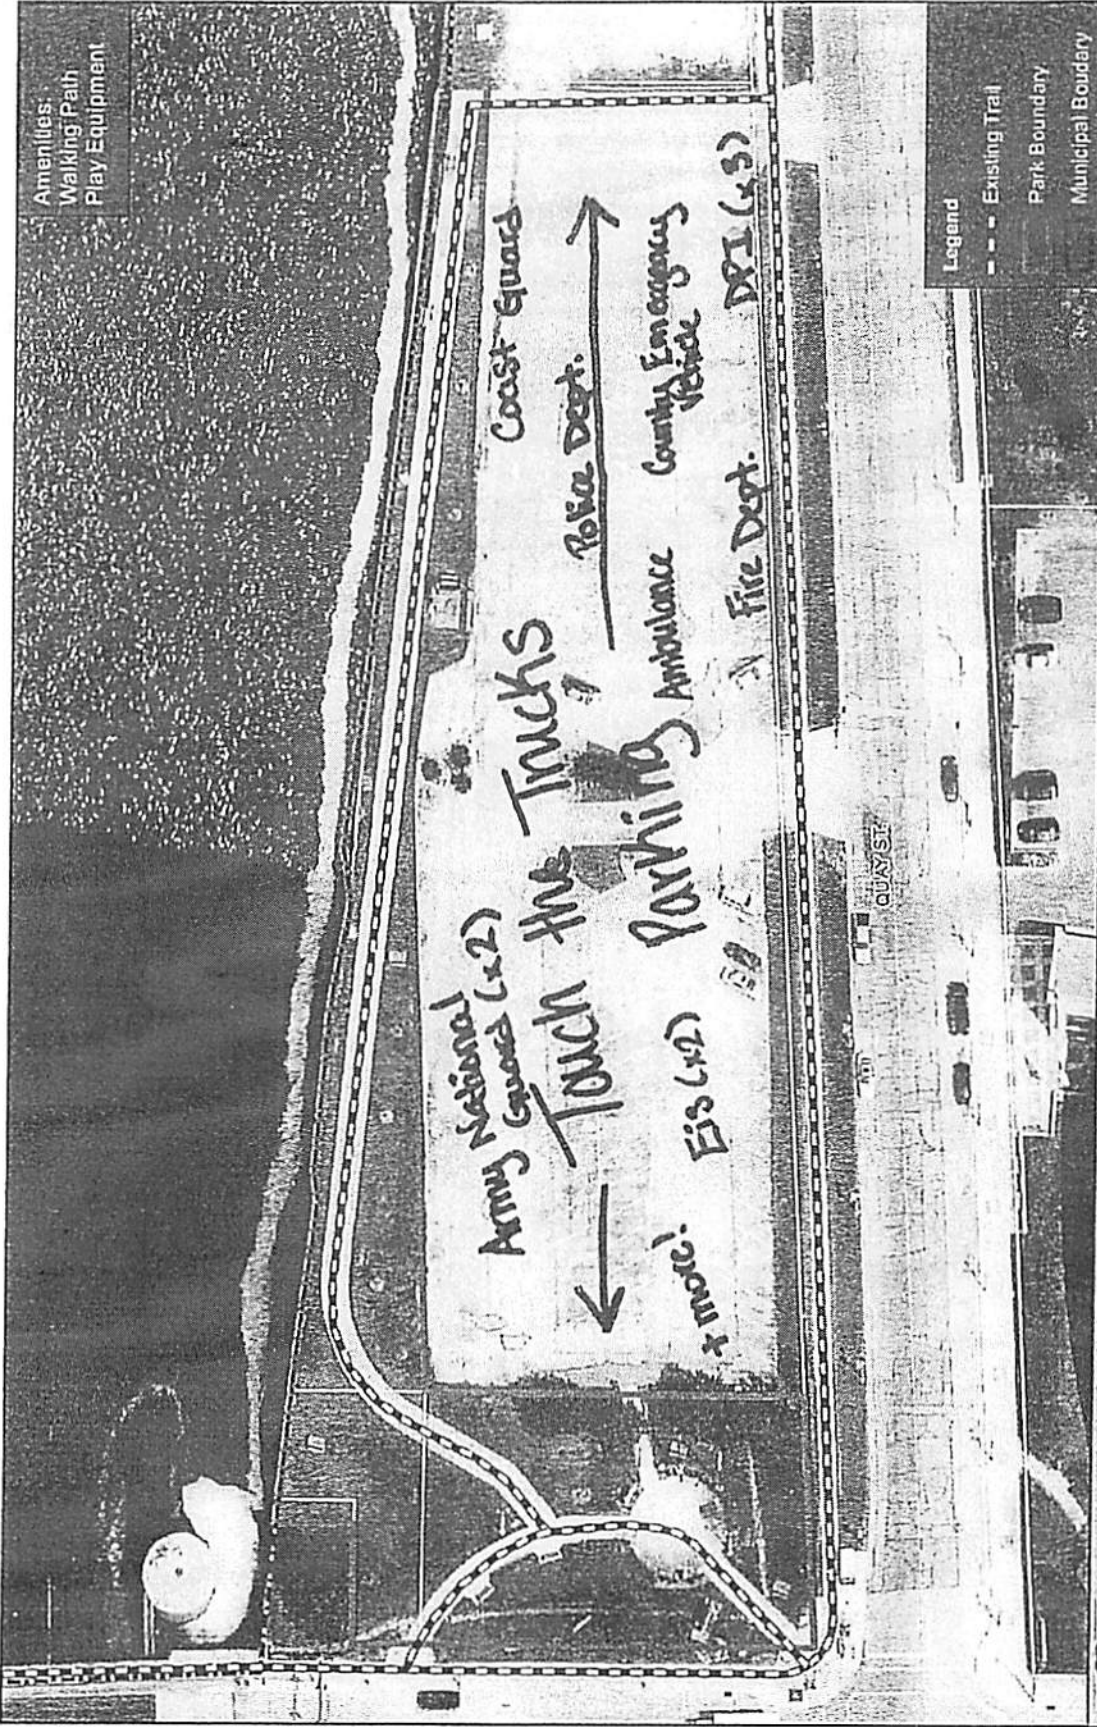 Amenities:
Walking Path
Play Equipment
Army National
Guard (x2)
Coast Guard
Touch the Trucks
Police Dept.
Parking
Ambulance
County Emergency
Vehicle
+ more!
Eis (x2)
Fire Dept.
DPI (x3)
QUAY ST
Legend
Existing Trail
Park Boundary
Municipal Boudary